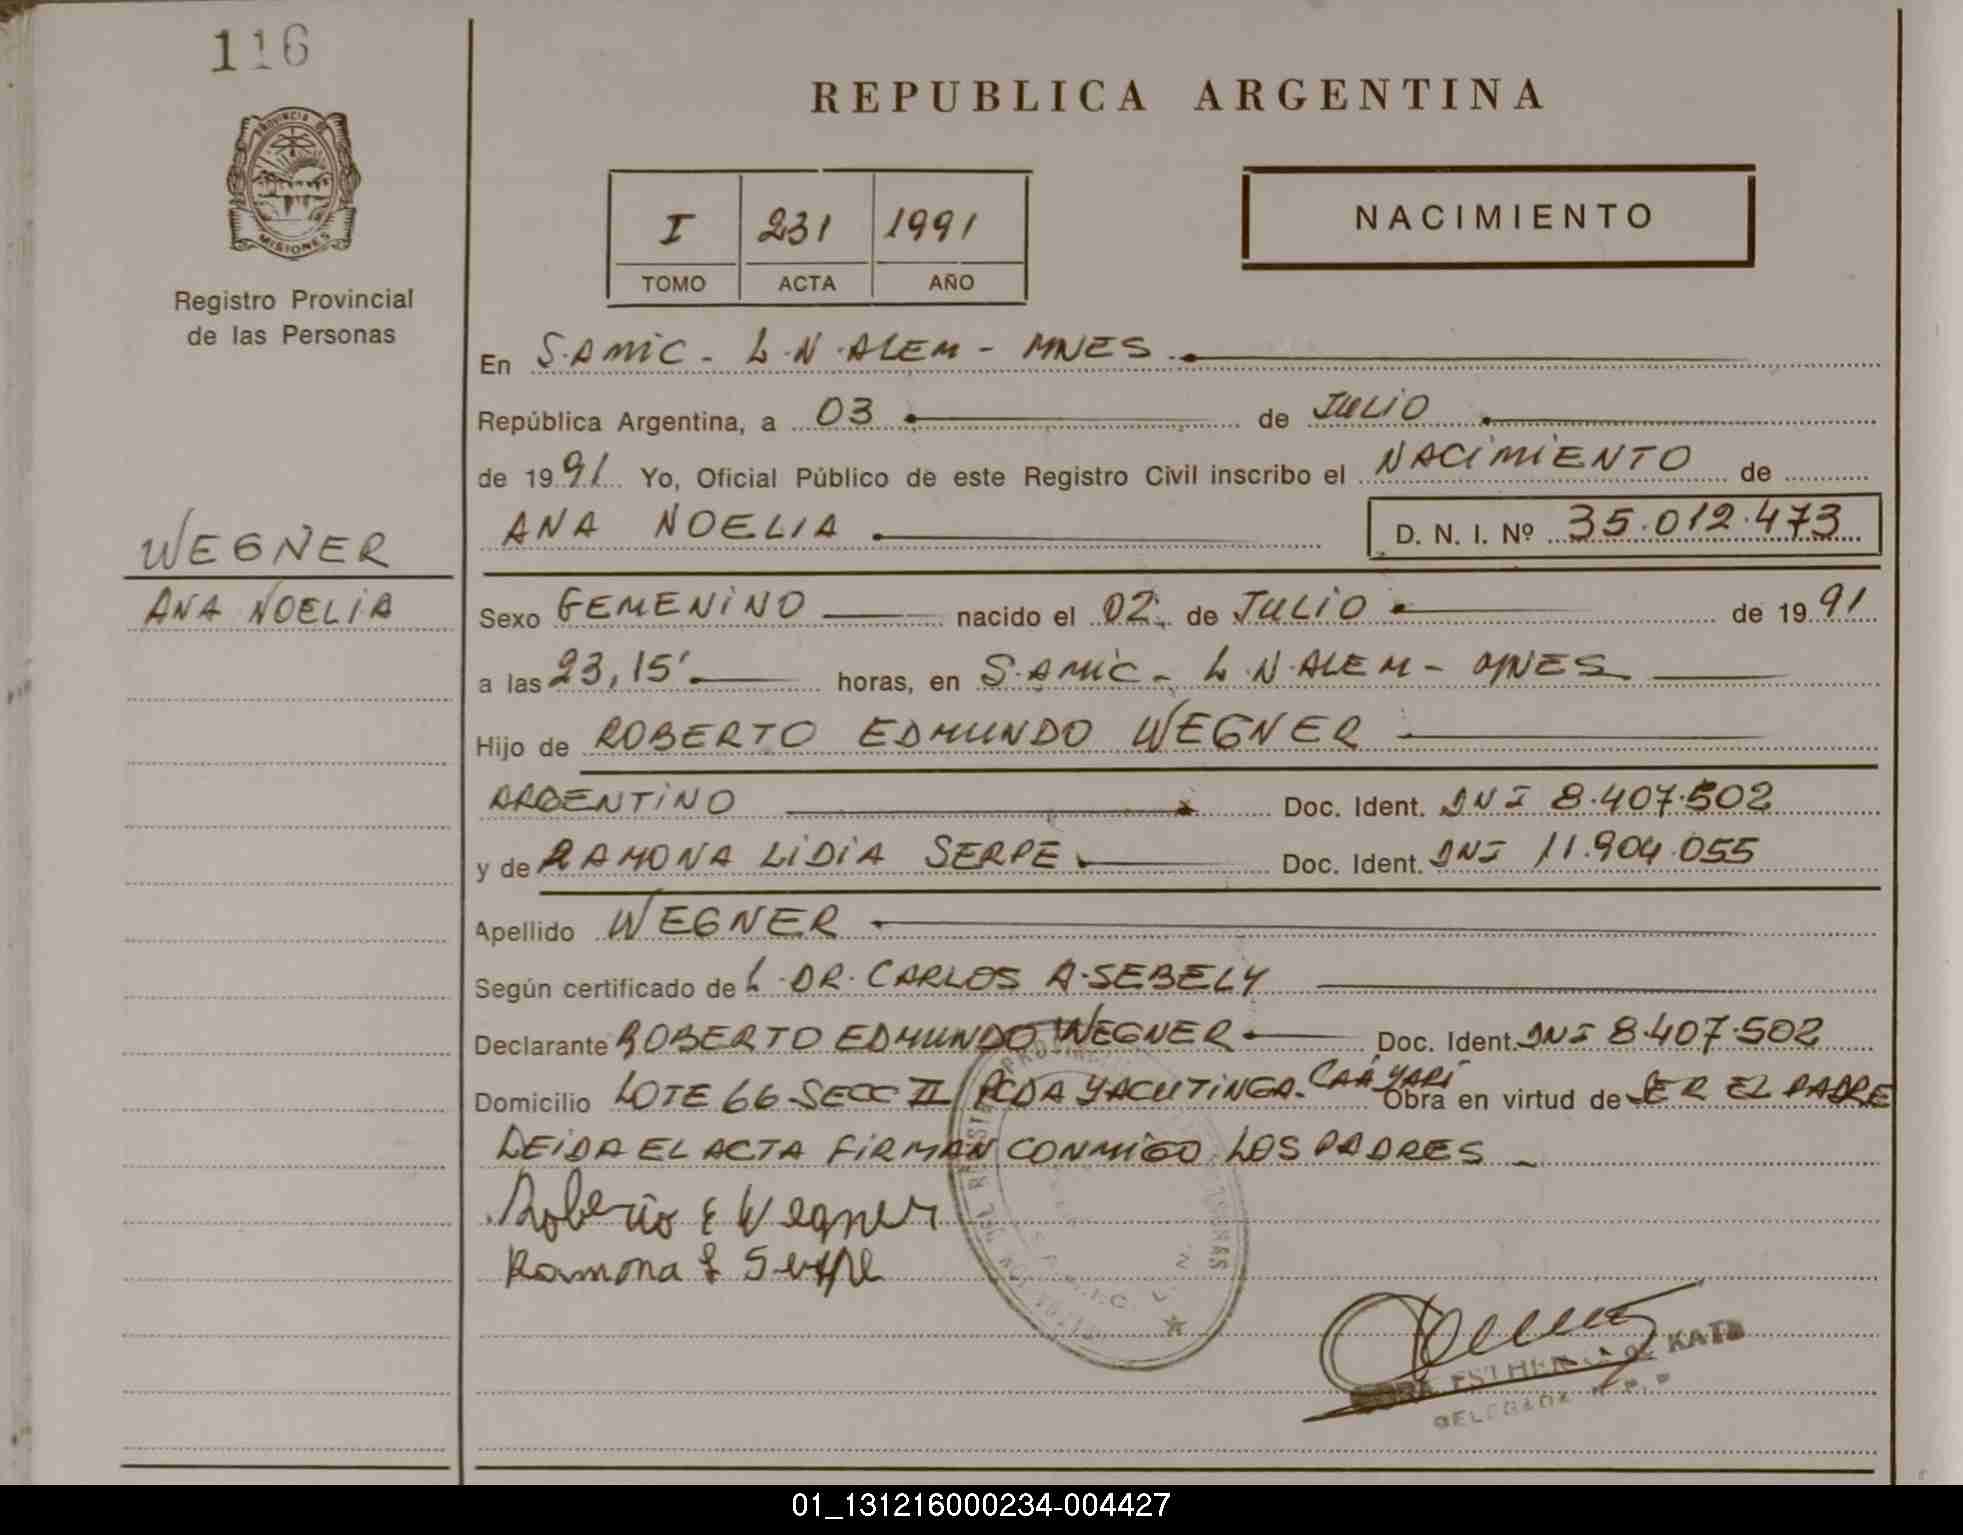 116
PROVINCIA DE
MISIONES
Registro Provincial
de las Personas
WEGNER
ANA NOELIA
REPUBLICA ARGENTINA
I 231 1991
TOMO ACTA AÑO
NACIMIENTO
En S.AMIC - L.N.ALEM - MNES
República Argentina, a 03 de JULIO
de 1991 Yo, Oficial Público de este Registro Civil inscribo el NACIMIENTO de
ANA NOELIA D. N. I. Nº 35.012.473
Sexo FEMENINO nacido el 02 de JULIO de 1991
a las 23,15' horas, en S.AMIC - L.N.ALEM - MNES
Hijo de ROBERTO EDMUNDO WEGNER
ARGENTINO Doc. Ident. DNI 8.407.502
y de RAMONA LIDIA SERPE Doc. Ident. DNI 11.904.055
Apellido WEGNER
Según certificado de L.DR. CARLOS A. SEBELY
Declarante ROBERTO EDMUNDO WEGNER Doc. Ident. DNI 8.407.502
Domicilio LOTE 66-SECC II PCDA YACUTINGA. CAÁ YARÍ Obra en virtud de SER EL PADRE
LEIDA EL ACTA FIRMAN CONMIGO LOS PADRES
Roberto E Wegner
Ramona L Serpe
DELEGADA
01_131216000234-004427